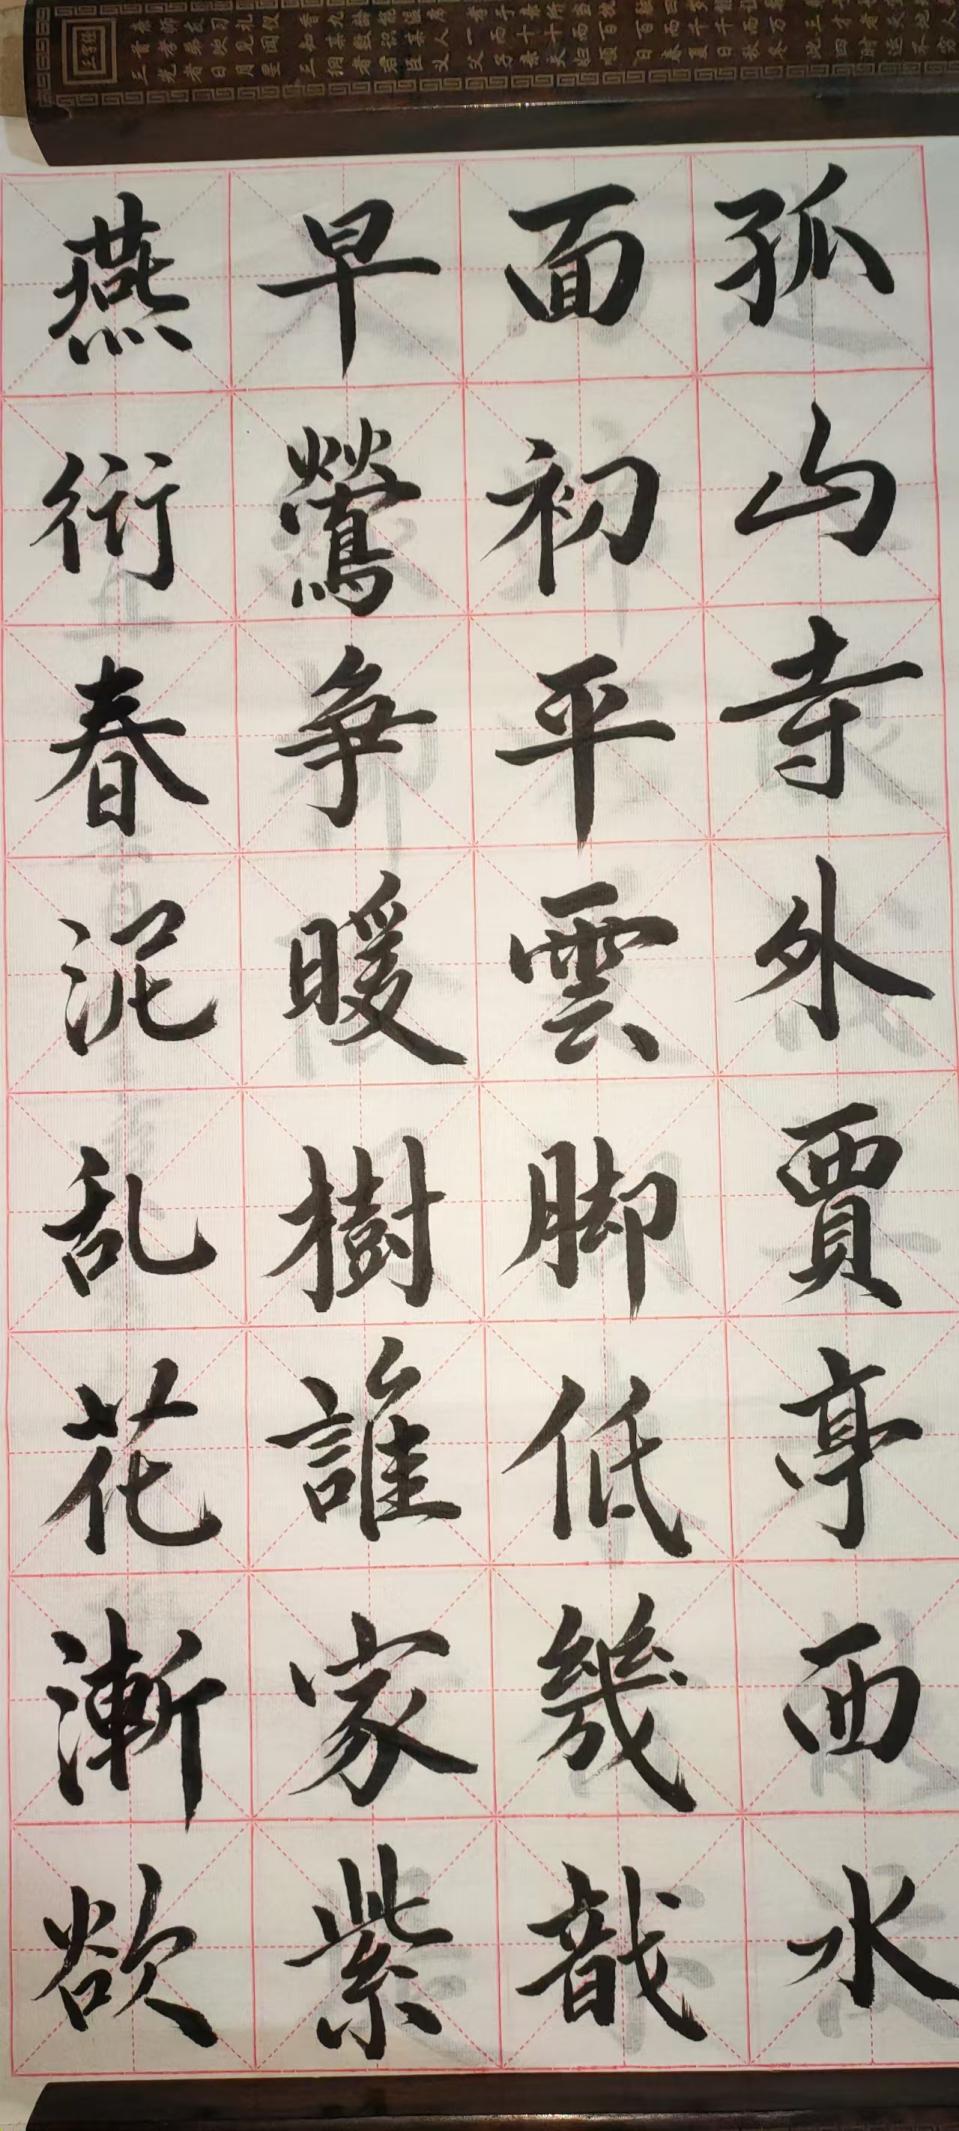 孤山寺外賈亭西水
面初平雲脚低幾戠
早鶯争暖樹誰家紫
燕衔春泥乱花漸欲